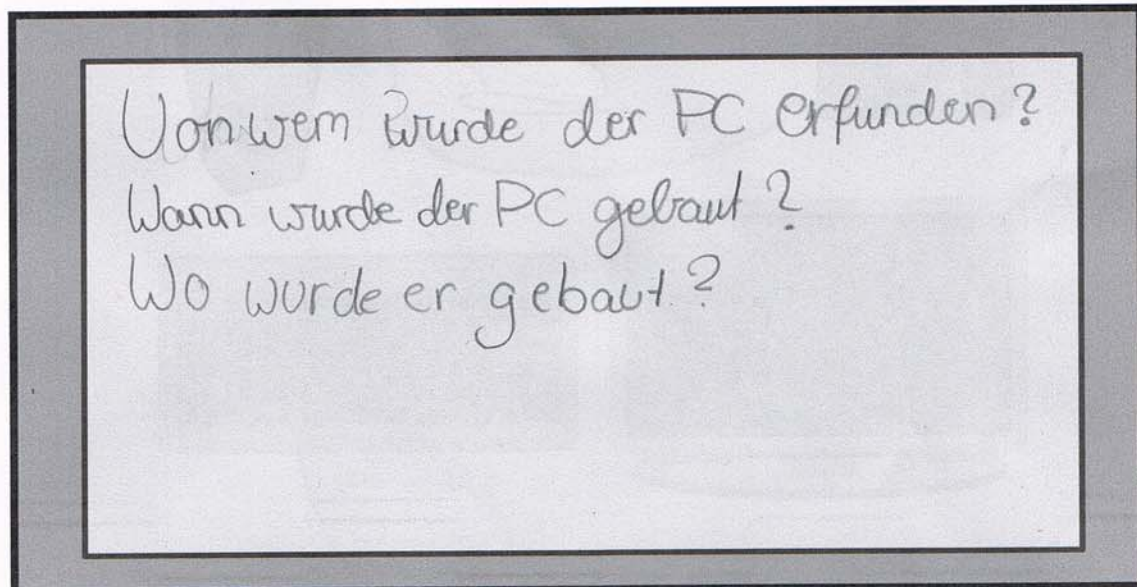 Von wem wurde der PC erfunden?
Wann wurde der PC gebaut?
Wo wurde er gebaut?